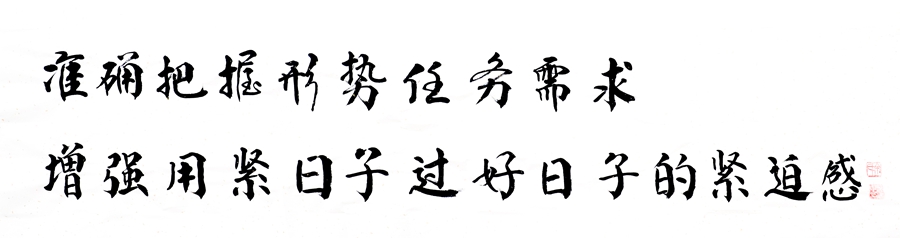 准确把握形势任务需求
增强用紧日子过好日子的紧迫感